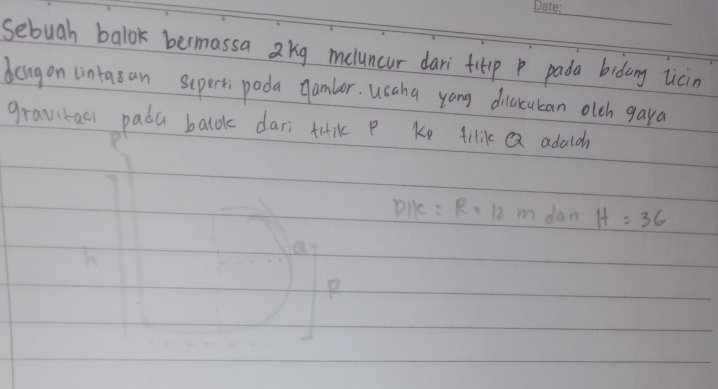 Date:
Sebuah balok bermassa 2 kg meluncur dari titip P pada bidang licin
dengan lintasan seperti pada gambar. Usaha yang dilakukan oleh gaya
gravitasi pada balok dari titik P ke titik Q adalah
P
Dik : R = 12 m dan H = 36
Q
h
R